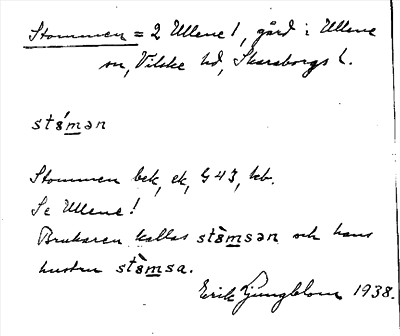 Stommen = 2 Ullene 1, gård i Ullene
sn, Vilske hd, Skaraborgs l.
stȣ́mən
Stommen bek, ek, G 43, kb.
Se Ullene!
Brukaren kallas stȣ̀msən och hans
hustru stȣ̀msa.
Erik Ljungblom 1938.